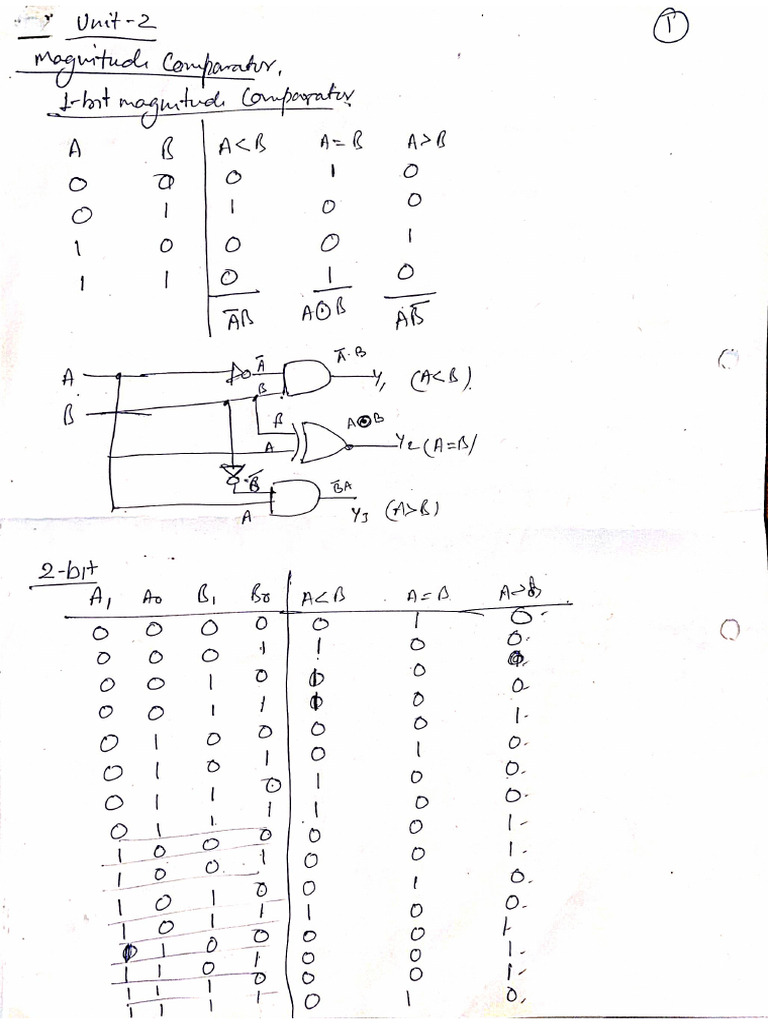 Unit-2
1
Magnitude Comparator,
1-bit magnitude Comparator
A B A<B A=B A>B
0 0 0 1 0
0 1 1 0 0
1 0 0 0 1
1 1 0 1 0
A̅B A⊙B AB̅
A A̅ A̅·B Y1 (A<B).
B B
B A⊙B
A Y2 (A=B)
B̅ B̅A
A Y3 (A>B)
2-bit
A1 A0 B1 B0 A<B A=B A>B
0 0 0 0 0 1 0
0 0 0 1 1 0 0
0 0 1 0 1 0 0
0 0 1 1 1 0 0
0 1 0 0 0 0 1
0 1 0 1 0 1 0
0 1 1 0 1 0 0
0 1 1 1 1 0 0
1 0 0 0 0 0 1
1 0 0 1 0 0 1
1 0 1 0 0 1 0
1 0 1 1 1 0 0
1 1 0 0 0 0 1
1 1 0 1 0 0 1
1 1 1 0 0 0 1
1 1 1 1 0 1 0